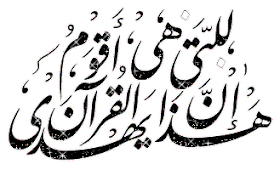 إِنَّ هَذَا القُرآنَ يَهْدِي
لِلَّتِي هِيَ أَقْوَمُ